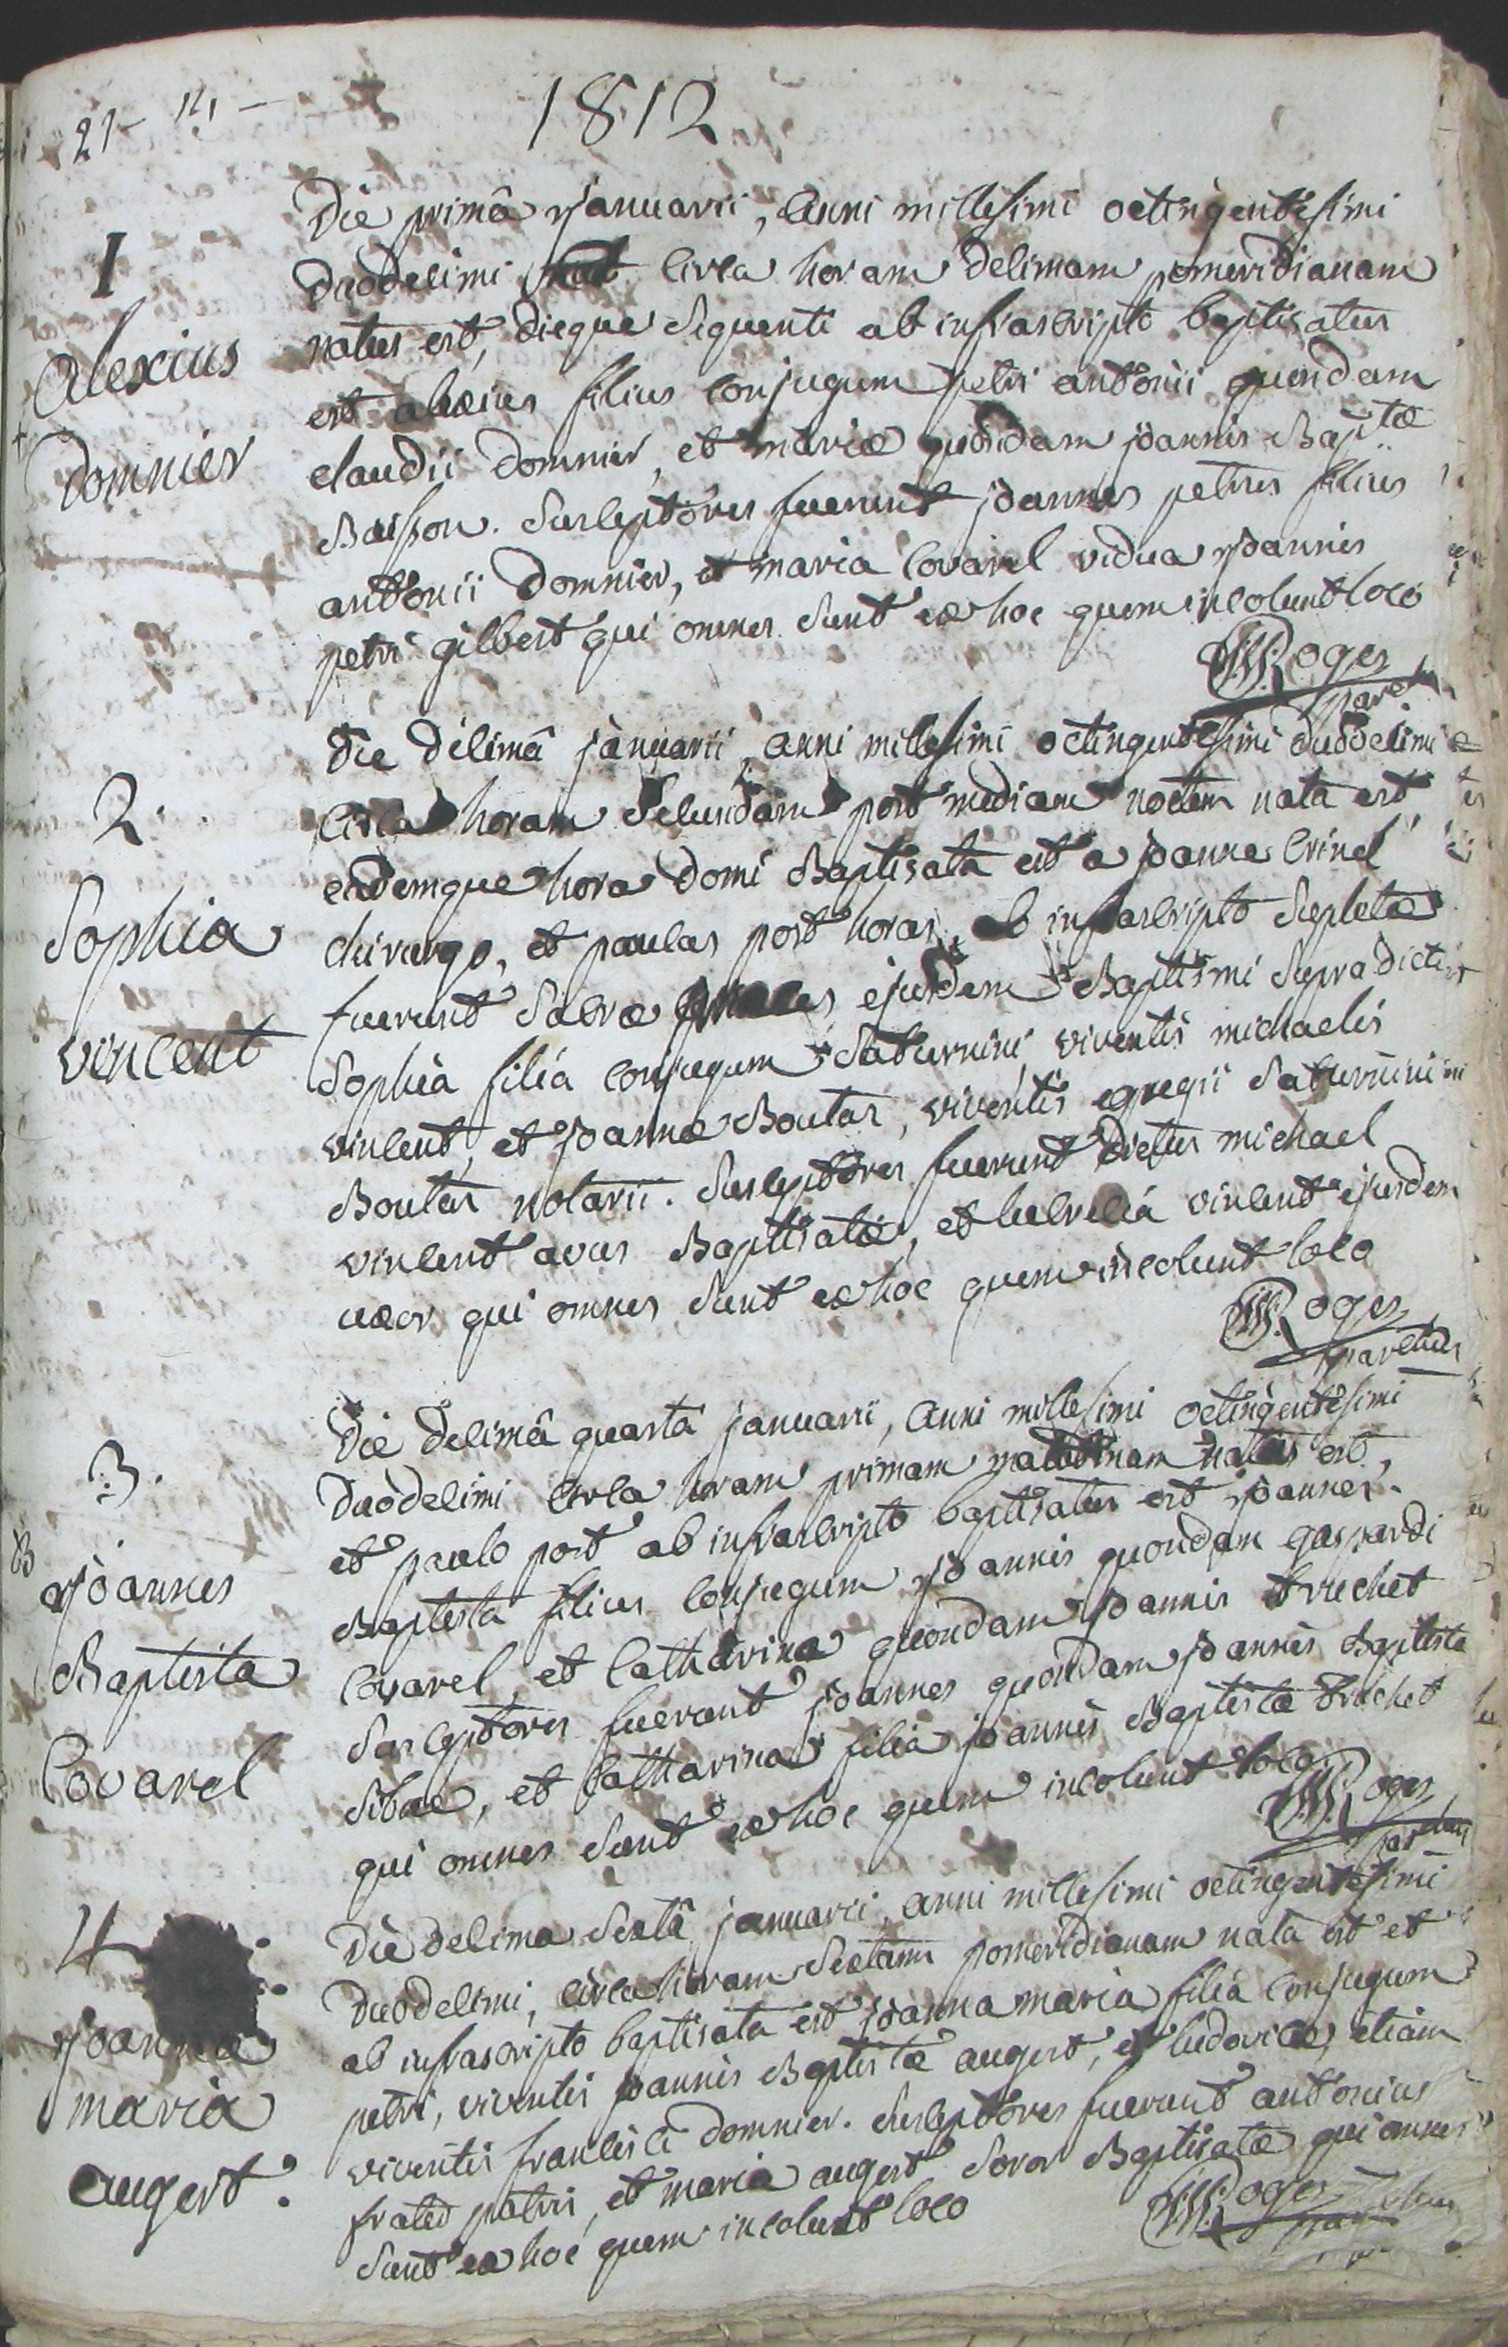 1812
21 -
1
Alexius
Domnier
Die primâ januarii, anni millesimi octingentesimi
duodecimi circa horam decimam pomeridianam
natus est, dieque sequenti ab infrascripto baptisatus
est alexius filius conjugum petri antonii quondam
claudii Domnier, et mariæ quondam joannis Baptæ
Buisson. Susceptores fuerunt joannes petrus filius
antonii Domnier, et maria Covarel vidua joannis
petri gilbert qui omnes sunt ex hoc quem incolunt loco
Roges
2.
Sophia
vincent
Die decimâ januarii, anni millesimi octingentesimi duodecimi
circa horam secundam post mediam noctem nata est
eademque hora domi Baptisata est a joanne Crinel
chirurgo, et paucas post horas, ab infrascripto supletæ
fuerunt sacræ preces ejusdem Baptismi supradictis
Sophia filia conjugum saturnini viventis michaelis
vincent, et joannæ Boutas, viventis egregii saturnini
Boutas notarii. Susceptores fuerunt dictus michael
vincent avus Baptisatæ, et lucrecia vincent ejusdem
uxor qui omnes sunt ex hoc quem incolunt loco
Roges
parochus
3.
joannes
Baptista
Covarel
Die decimâ quarta januarii, anni millesimi octingentesimi
duodecimi circa horam primam matutinam natus est,
et paulo post ab infrascripto baptisatus est joannes
Baptista filius conjugum joannis quondam gaspardi
Covarel et Catharina quondam joannis truchet
Susceptores fuerunt joannes quondam joannis Baptista
Sibue, et Catharina filia joannis Baptistæ truchet
qui omnes sunt ex hoc quem incolunt loco
Roges
parochus
4
joanna
maria
augert.
Die decima sextâ januarii, anni millesimi octingentesimi
duodecimi, circa horam sextam pomeridianam nata est et
ab infrascripto baptisata est joanna maria filia conjugum
petri, viventis joannis Baptistæ augert, et ludovicæ, etiam
viventis francisci domnier. Susceptores fuerunt antonius
frater patris, et maria augert soror Baptisatæ qui omnes
sunt ex hoc quem incolunt loco
Roges